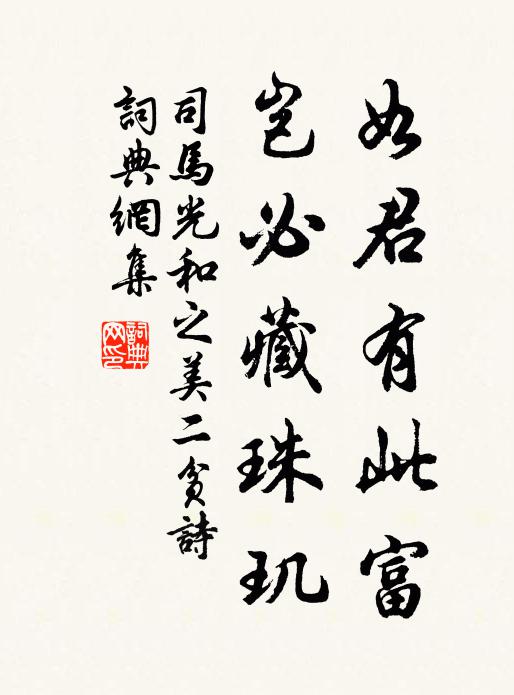 如君有此富
岂必藏珠玑
司馬光和之美二贫詩
詞典網集
詞典网印